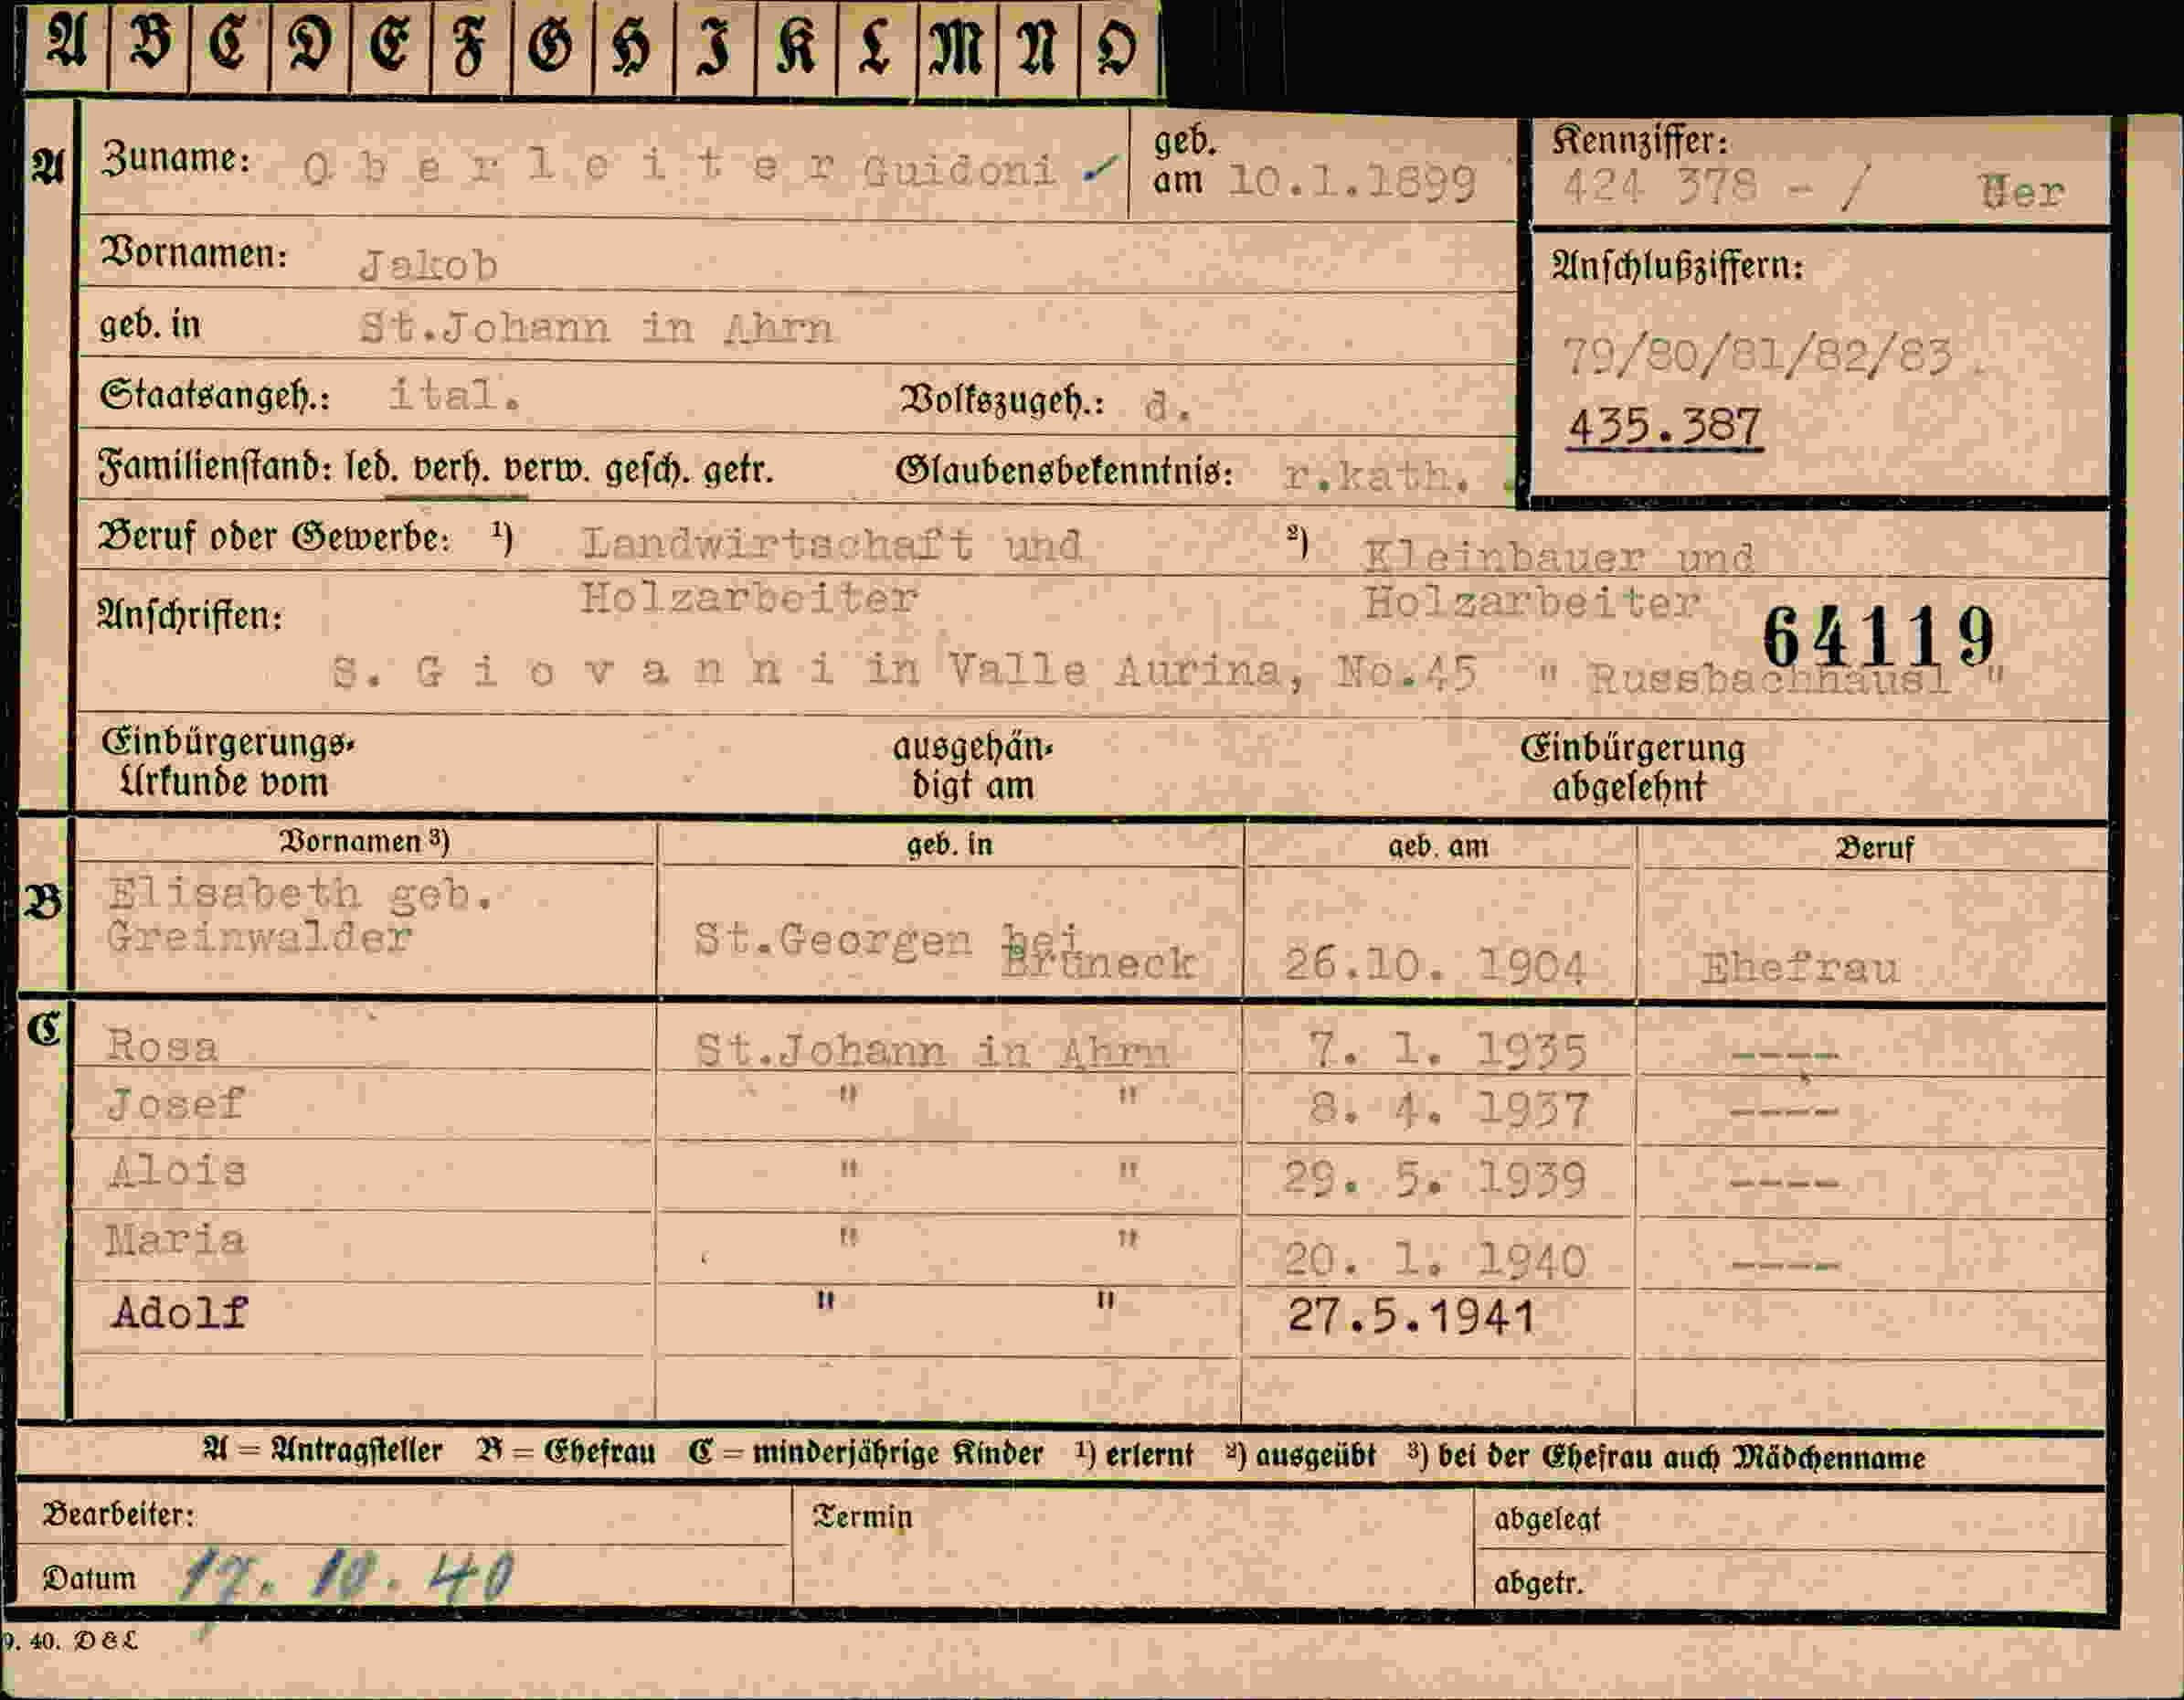 A B C D E F G H I K L M N O
A Zuname: O b e r l e i t e r Guidoni geb. am 10.1.1899 Kennziffer: 424 378 - / Her
Vornamen: Jakob Anschlußziffern:
geb. in St.Johann in Ahrn 79/80/81/82/83
Staatsangeh.: ital. Volkszugeh.: d. 435.387
Familienstand: led. verh. verw. gesch. getr. Glaubensbekenntnis: r.kath.
Beruf oder Gewerbe: 1) Landwirtschaft und 2) Kleinbauer und
Holzarbeiter Holzarbeiter 64119
Anschriften:
S. G i o v a n n i in Valle Aurina, No.45 " Russbachhäusl "
Einbürgerungs- ausgehän- Einbürgerung
Urkunde vom digt am abgelehnt
Vornamen 3) geb. in geb. am Beruf
B Elisabeth geb.
Greinwalder St.Georgen bei Bruneck 26.10. 1904 Ehefrau
C Rosa St.Johann in Ahrn 7. 1. 1935 ----
Josef " " 8. 4. 1937 ----
Alois " " 29. 5. 1939 ----
Maria " " 20. 1. 1940 ----
Adolf " " 27.5.1941
A = Antragsteller B = Ehefrau C = minderjährige Kinder 1) erlernt 2) ausgeübt 3) bei der Ehefrau auch Mädchenname
Bearbeiter: Termin abgelegt
Datum 17. 10. 40 abgetr.
9. 40. D & L